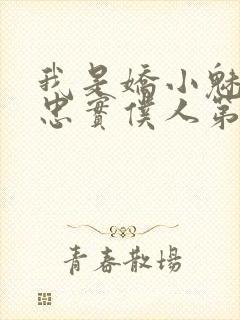 我是嬌小魅
忠實僕人第
青春散場